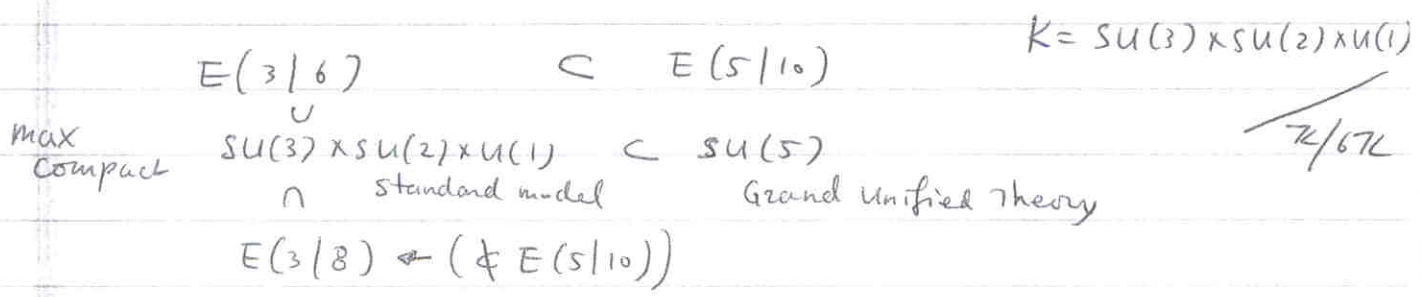 K = SU(3) × SU(2) × U(1)
E(3|6) ⊂ E(5|10)
∪
/ ℤ/6ℤ
max
compact SU(3) × SU(2) × U(1) ⊂ SU(5)
∩ Standard model Grand Unified Theory
E(3|8) ← (⊄ E(5|10))